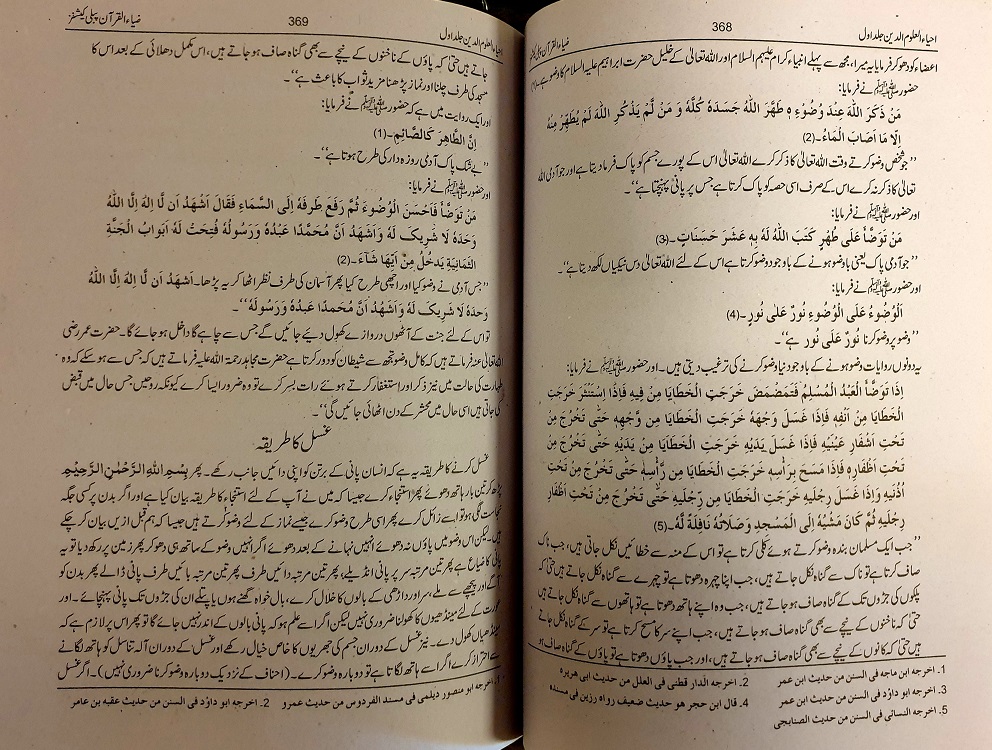 احیاء العلوم الدین جلد اول 368 ضیاء القرآن پبلی کیشنز
اعضاء کو دھو کر فرمایا یہ میرا، مجھ سے پہلے انبیاء کرام علیہم السلام اور اللہ تعالیٰ کے خلیل حضرت ابراہیم علیہ السلام کا وضو ہے۔(1)
حضور ﷺ نے فرمایا:
مَنْ ذَكَرَ اللّٰهَ عِنْدَ وُضُوْءِ ہٖ طَهَّرَ اللّٰهُ جَسَدَهٗ كُلَّهٗ وَ مَنْ لَّمْ يَذْكُرِ اللّٰهَ لَمْ يُطَهَّرْ مِنْهُ
اِلَّا مَا اَصَابَ الْمَاءُ۔(2)
’’جو شخص وضو کرتے وقت اللہ تعالیٰ کا ذکر کرے اللہ تعالیٰ اس کے پورے جسم کو پاک فرما دیتا ہے اور جو آدمی اللہ
تعالیٰ کا ذکر نہ کرے اس کے صرف اسی حصہ کو پاک کرتا ہے جس پر پانی پہنچتا ہے‘‘۔
اور حضور ﷺ نے فرمایا:
مَنْ تَوَضَّأَ عَلٰى طُهْرٍ كَتَبَ اللّٰهُ لَهٗ بِهٖ عَشَرَ حَسَنَاتٍ۔(3)
’’جو آدمی پاک یعنی باوضو ہونے کے باوجود وضو کرتا ہے اس کے لئے اللہ تعالیٰ دس نیکیاں لکھ دیتا ہے‘‘۔
اور حضور ﷺ نے فرمایا:
اَلْوُضُوْءُ عَلَى الْوُضُوْءِ نُوْرٌ عَلٰى نُوْرٍ۔(4)
’’وضو پر وضو کرنا نُورٌ عَلٰى نُورٍ ہے‘‘۔
یہ دونوں روایات وضو ہونے کے باوجود نیا وضو کرنے کی ترغیب دیتی ہیں۔ اور حضور ﷺ نے فرمایا:
اِذَا تَوَضَّأَ الْعَبْدُ الْمُسْلِمُ فَتَمَضْمَضَ خَرَجَتِ الْخَطَايَا مِنْ فِيْهِ فَاِذَا اسْتَنْثَرَ خَرَجَتِ
الْخَطَايَا مِنْ اَنْفِهٖ فَاِذَا غَسَلَ وَجْهَهٗ خَرَجَتِ الْخَطَايَا مِنْ وَّجْهِهٖ حَتّٰى تَخْرُجَ مِنْ
تَحْتِ اَشْفَارِ عَيْنَيْهِ فَاِذَا غَسَلَ يَدَيْهِ خَرَجَتِ الْخَطَايَا مِنْ يَدَيْهِ حَتّٰى تَخْرُجَ مِنْ
تَحْتِ اَظْفَارِهٖ فَاِذَا مَسَحَ بِرَأْسِهٖ خَرَجَتِ الْخَطَايَا مِنْ رَّأْسِهٖ حَتّٰى تَخْرُجَ مِنْ تَحْتِ
اُذُنَيْهِ وَاِذَا غَسَلَ رِجْلَيْهِ خَرَجَتِ الْخَطَايَا مِنْ رِجْلَيْهِ حَتّٰى تَخْرُجَ مِنْ تَحْتِ اَظْفَارِ
رِجْلَيْهِ ثُمَّ كَانَ مَشْيُهٗ اِلَى الْمَسْجِدِ وَصَلَاتُهٗ نَافِلَةً لَّهٗ۔(5)
’’جب ایک مسلمان بندہ وضو کرتے ہوئے کلی کرتا ہے تو اس کے منہ سے خطائیں نکل جاتی ہیں، جب ناک
صاف کرتا ہے تو ناک سے گناہ نکل جاتے ہیں، جب اپنا چہرہ دھوتا ہے تو چہرے سے گناہ نکل جاتے ہیں حتیٰ کہ
پلکوں کی جڑوں تک کے گناہ صاف ہو جاتے ہیں، جب وہ اپنے ہاتھ دھوتا ہے تو ہاتھوں سے گناہ نکل جاتے ہیں
حتیٰ کہ ناخنوں کے نیچے سے بھی گناہ صاف ہو جاتے ہیں، جب اپنے سر کا مسح کرتا ہے تو سر کے گناہ نکل جاتے
ہیں حتیٰ کہ کانوں کے نیچے سے بھی گناہ صاف ہو جاتے ہیں، اور جب پاؤں دھوتا ہے تو پاؤں کے گناہ صاف ہو
1. اخرجه ابن ماجه فی السنن من حدیث ابن عمر 2. اخرجه الدار قطنی فی العلل من حدیث ابی هریره
3. اخرجه ابو داؤد فی السنن من حدیث ابن عمر 4. قال ابن حجر هو حدیث ضعیف رواه رزین فی مسنده
5. اخرجه النسائی فی السنن من حدیث الصنابحی
احیاء العلوم الدین جلد اول 369 ضیاء القرآن پبلی کیشنز
جاتے ہیں حتیٰ کہ پاؤں کے ناخنوں کے نیچے سے بھی گناہ صاف ہو جاتے ہیں، اس مکمل دھلائی کے بعد اس کا
مسجد کی طرف چلنا اور نماز پڑھنا مزید ثواب کا باعث ہے‘‘۔
اور ایک روایت میں ہے کہ حضور ﷺ نے فرمایا:
اِنَّ الطَّاهِرَ كَالصَّائِمِ۔(1)
’’بے شک پاک آدمی روزہ دار کی طرح ہوتا ہے‘‘۔
اور حضور ﷺ نے فرمایا:
مَنْ تَوَضَّأَ فَاَحْسَنَ الْوُضُوْءَ ثُمَّ رَفَعَ طَرْفَهٗ اِلَى السَّمَاءِ فَقَالَ اَشْهَدُ اَنْ لَّا اِلٰهَ اِلَّا اللّٰهُ
وَحْدَهٗ لَا شَرِيْكَ لَهٗ وَاَشْهَدُ اَنَّ مُحَمَّدًا عَبْدُهٗ وَرَسُوْلُهٗ فُتِحَتْ لَهٗ اَبْوَابُ الْجَنَّةِ
الثَّمَانِيَةِ يَدْخُلُ مِنْ اَيِّهَا شَآءَ۔(2)
’’جس آدمی نے وضو کیا اور اچھی طرح کیا پھر آسمان کی طرف نظر اٹھا کر یہ پڑھا۔ اَشْهَدُ اَنْ لَّا اِلٰهَ اِلَّا اللّٰهُ
وَحْدَهٗ لَا شَرِيْكَ لَهٗ وَاَشْهَدُ اَنَّ مُحَمَّدًا عَبْدُهٗ وَرَسُوْلُهٗ‘‘۔
تو اس کے لئے جنت کے آٹھوں دروازے کھول دیے جائیں گے جس سے چاہے گا داخل ہو جائے گا۔ حضرت عمر رضی
اللہ تعالیٰ عنہ فرماتے ہیں کہ کامل وضو تجھ سے شیطان کو دور کرتا ہے حضرت مجاہد رحمۃ اللہ علیہ فرماتے ہیں کہ جس سے ہو سکے کہ وہ
طہارت کی حالت میں نیز ذکر اور استغفار کرتے ہوئے رات بسر کرے تو وہ ضرور ایسا کرے کیونکہ روحیں جس حال میں قبض
کی جاتی ہیں اسی حال میں محشر کے دن اٹھائی جائیں گی‘‘۔
غسل کا طریقہ
غسل کرنے کا طریقہ یہ ہے کہ انسان پانی کے برتن کو اپنی دائیں جانب رکھے۔ پھر بِسْمِ اللّٰهِ الرَّحْمٰنِ الرَّحِيْمِ
پڑھ کر تین بار ہاتھ دھوئے پھر استنجاء کرے جیسا کہ میں نے آپ کے لئے استنجاء کا طریقہ بیان کیا ہے اور اگر بدن پر کسی جگہ
نجاست لگی ہو تو اسے زائل کرے پھر اسی طرح وضو کرے جیسے نماز کے لئے وضو کرتے ہیں جیسا کہ ہم قبل ازیں بیان کر چکے
ہیں۔ لیکن اس وضو میں پاؤں نہ دھوئے انہیں نہانے کے بعد دھوئے اگر انہیں وضو کے ساتھ ہی دھو کر پھر زمین پر رکھ دیا تو یہ
پانی کا ضیاع ہے پھر تین مرتبہ سر پر پانی انڈیلے، پھر تین مرتبہ دائیں طرف پھر تین مرتبہ بائیں طرف پانی ڈالے پھر بدن کو
آگے اور پیچھے سے ملے، سر اور داڑھی کے بالوں کا خلال کرے، بال خواہ گھنے ہوں یا ہلکے ان کی جڑوں تک پانی پہنچائے۔ اور
عورت کے لئے مینڈھیوں کا کھولنا ضروری نہیں لیکن اگر اسے علم ہو کہ پانی بالوں کے اندر نہیں جائے گا تو پھر اس پر لازم ہے کہ
مینڈھیاں کھول دے۔ نیز غسل کے دوران جسم کی جھریوں کا خاص خیال رکھے اور غسل کے دوران آلہ تناسل کو ہاتھ لگانے
سے احتراز کرے اگر اسے ہاتھ لگاتا ہے تو دوبارہ وضو کرے۔ (احناف کے نزدیک دوبارہ وضو کرنا ضروری نہیں)۔ اگر غسل
1. اخرجه ابو منصور دیلمی فی مسند الفردوس من حدیث عمرو 2. اخرجه ابو داؤد فی السنن من حدیث عقبه بن عامر